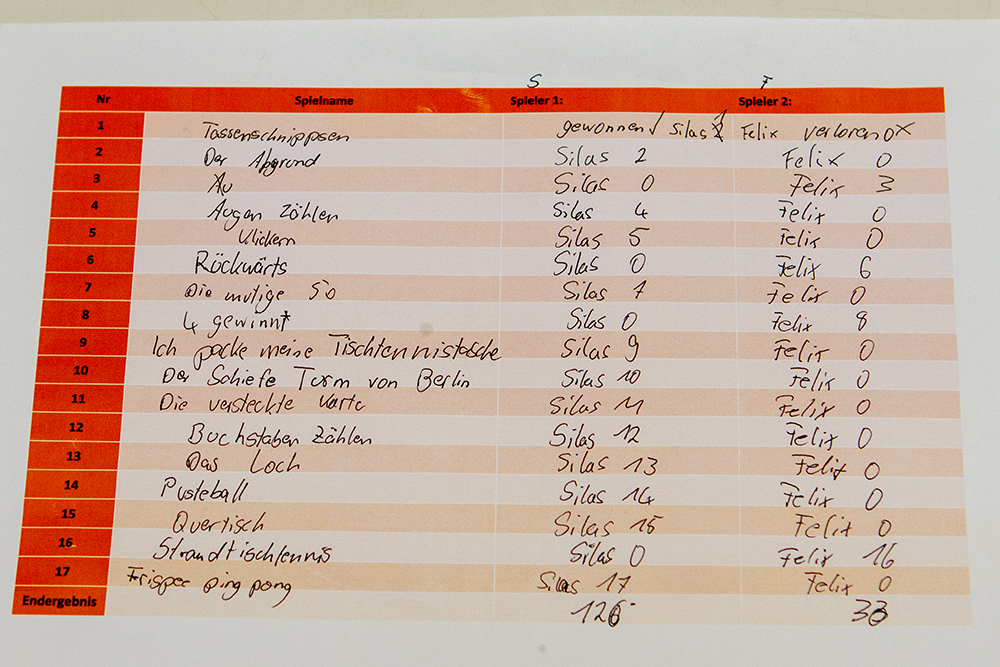 S F
Nr Spielname Spieler 1: Spieler 2:
1 Tassenschnippsen gewonnen √ Silas Felix verloren 0 X
2 Der Abgrund Silas 2 Felix 0
3 Au Silas 0 Felix 3
4 Augen Zählen Silas 4 Felix 0
5 Klickern Silas 5 Felix 0
6 Röckwärts Silas 0 Felix 6
7 Die mutige 50 Silas 7 Felix 0
8 4 gewinnt Silas 0 Felix 8
9 Ich packe meine Tischtennistasche Silas 9 Felix 0
10 Der Schiefe Turm von Berlin Silas 10 Felix 0
11 Die versteckte Karte Silas 11 Felix 0
12 Buchstaben Zählen Silas 12 Felix 0
13 Das Loch Silas 13 Felix 0
14 Pusteball Silas 14 Felix 0
15 Quertisch Silas 15 Felix 0
16 Strandtischtennis Silas 0 Felix 16
17 Frispee ping pong Silas 17 Felix 0
Endergebnis 120 33